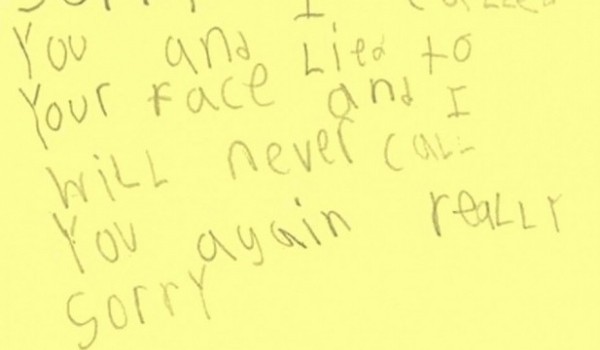 Sorry I called
You and Lied to
Your Face and I
will never call
You again really
Sorry